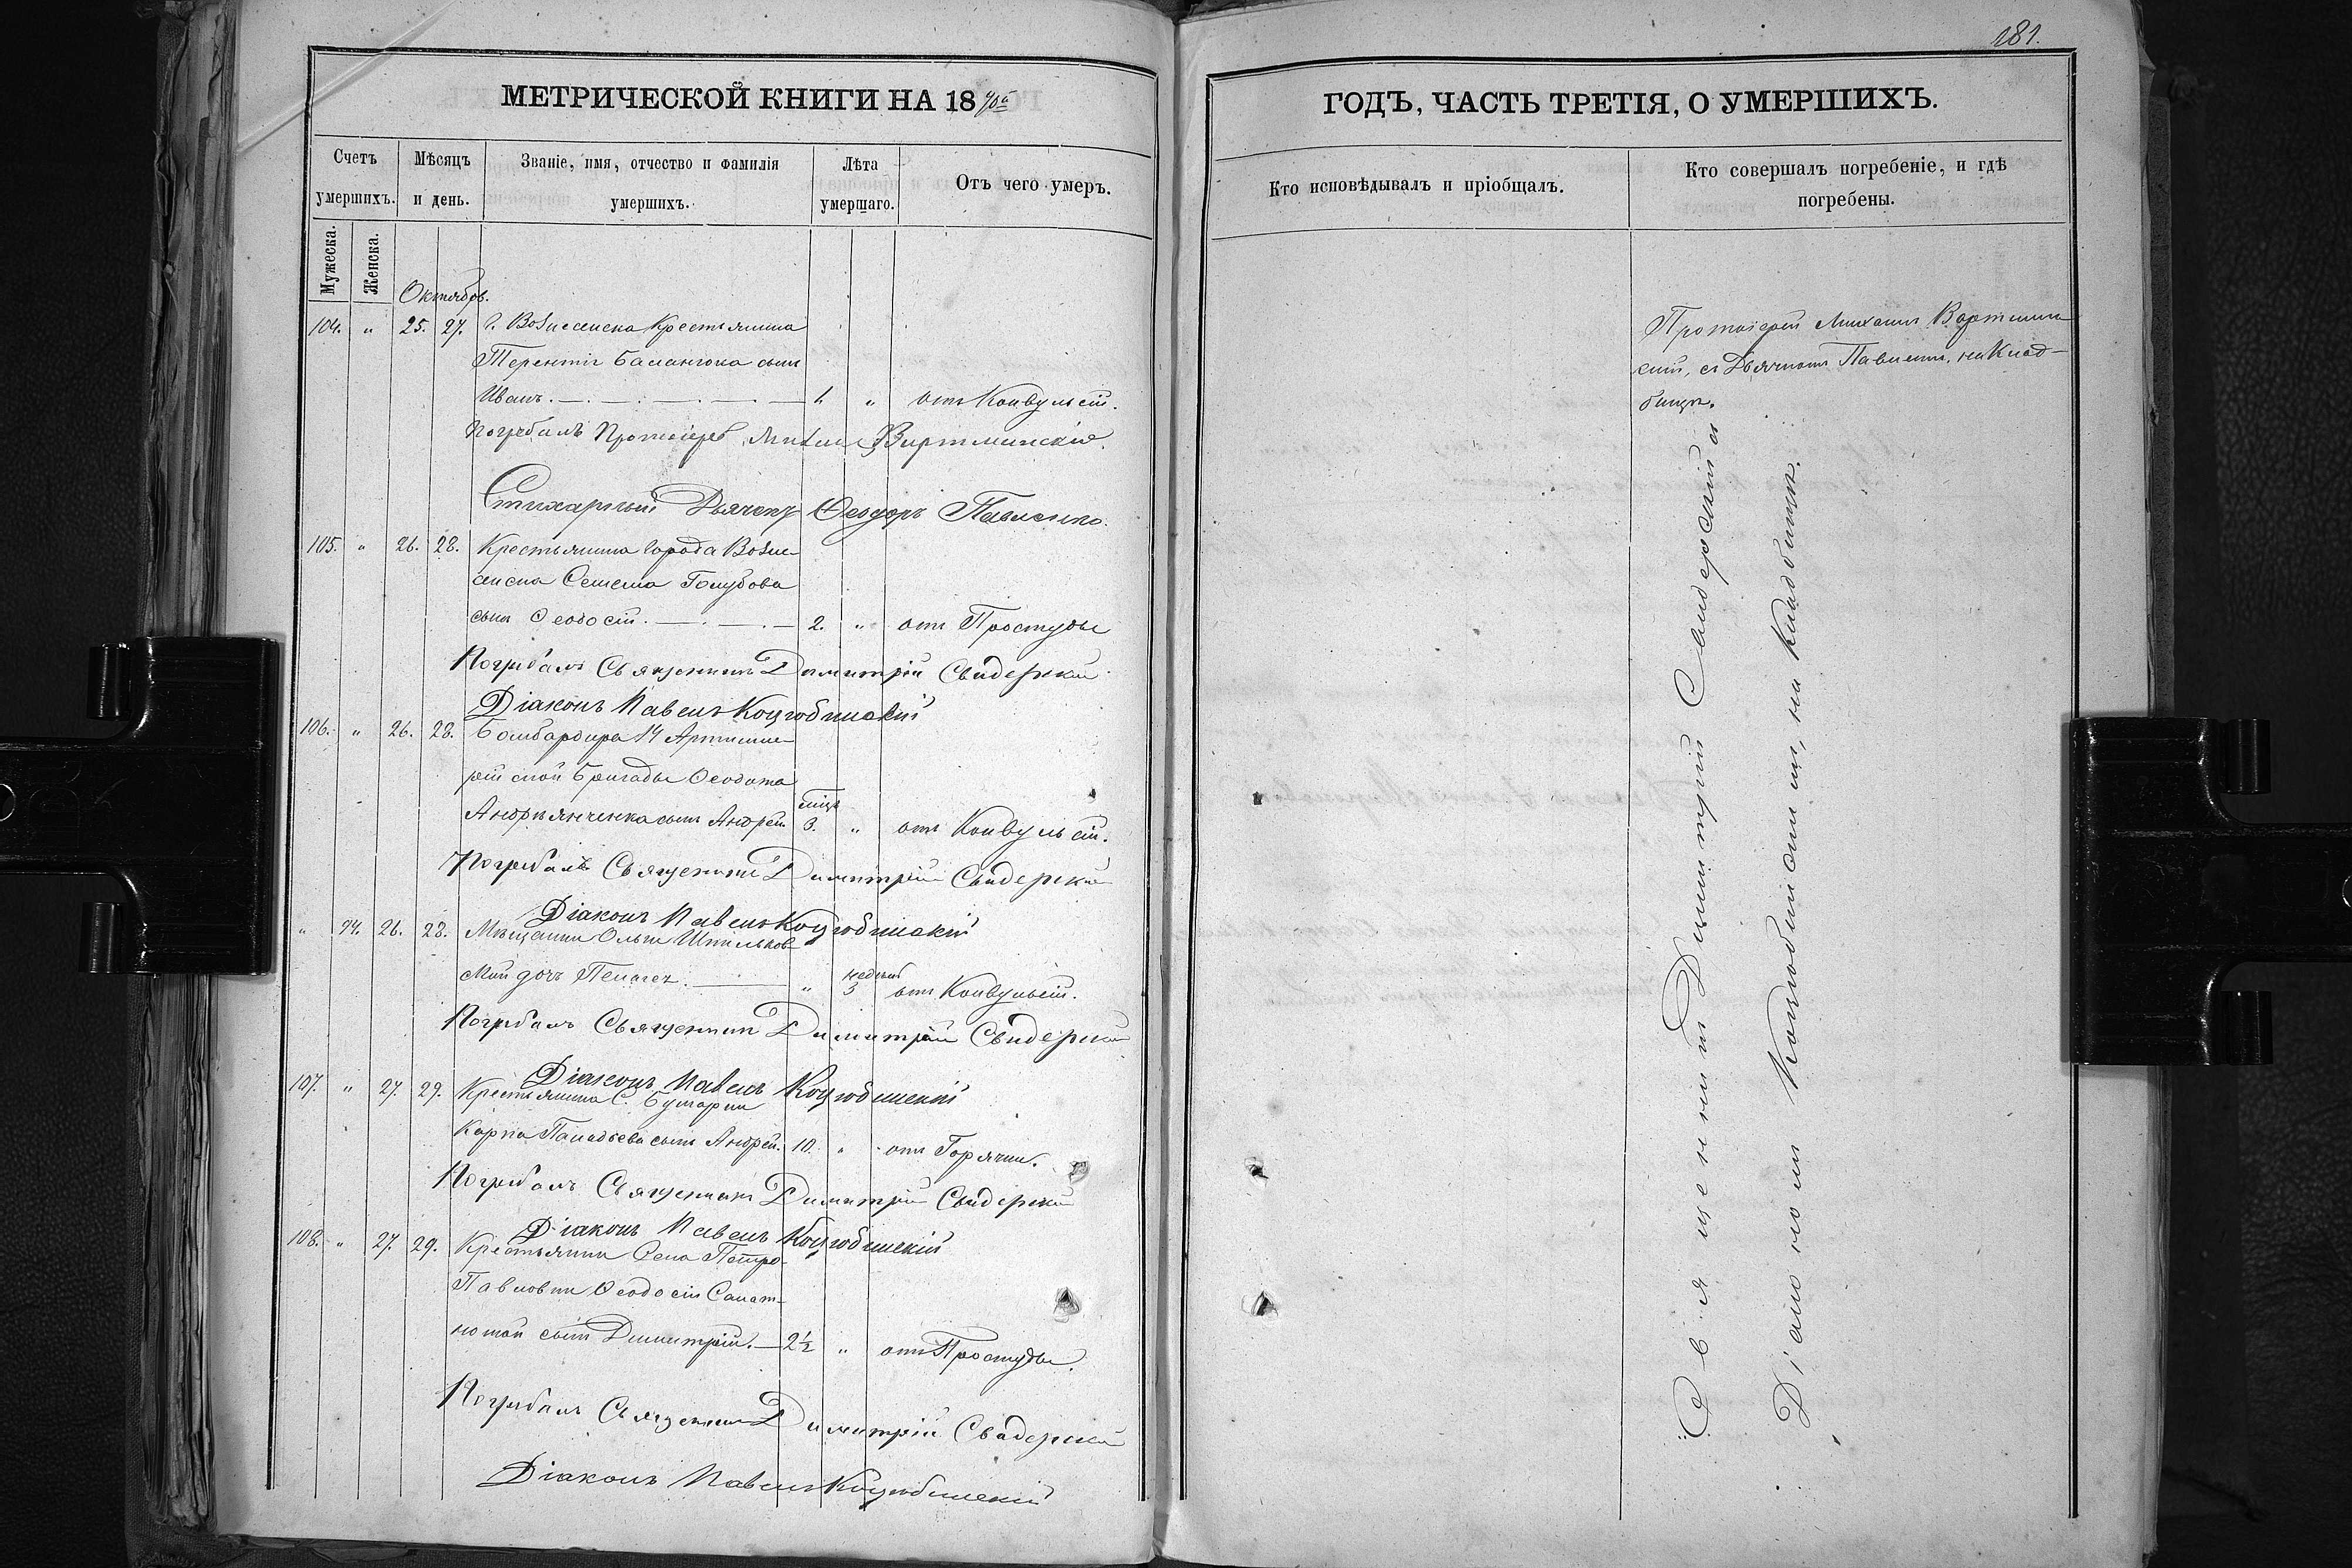 МЕТРИЧЕСКОЙ КНИГИ НА 1870й
Счетъ умершихъ.
Мѣсяцъ и день.
Званіе, имя, отчество и фамилія умершихъ.
Лѣта умершаго.
Отъ чего умеръ.
Мужеска.
Женска.
Октябрь.
104. " 25. 27. г. Вознесенска Крестьянина
Терентія сынъ
Иванъ. 1. " отъ Конвульсій.
Погребалъ Протоіерей Михаилъ Вартминскій.
Стихарный Дьячекъ Ѳеодоръ Павленко.
105. " 26. 28. Крестьянина города Вознесенска
Семена Голубова
сынъ Ѳеодосій. 2. " отъ Простуды
Погребалъ Священникъ Димитрій Свидерскій
Діаконъ Павелъ Коцюбинскій
106. " 26. 28. Бомбардира 14 Артиллерійской
Бригады Ѳеодота
Андріянченка сынъ Андрей мѣц. 3. " отъ Конвульсій.
Погребалъ Священникъ Димитрій Свидерскій
Діаконъ Павелъ Коцюбинскій
" 94. 26. 28. Мѣщанки Ольги
дочь Пелагея. " недѣли 3 отъ Конвульсій.
Погребалъ Священникъ Димитрій Свидерскій
Діаконъ Павелъ Коцюбинскій
107. " 27. 29. Крестьянина С. Булгарки
Карпа сынъ Андрей. 10. " отъ Горячки.
Погребалъ Священникъ Димитрій Свидерскій
Діаконъ Павелъ Коцюбинскій
108. " 27. 29. Крестьянки Села Петро-
Павловки Ѳеодосіи
сынъ Димитрій. 2½ " отъ Простуды.
Погребалъ Священникъ Димитрій Свидерскій
Діаконъ Павелъ Коцюбинскій
181.
ГОДЪ, ЧАСТЬ ТРЕТІЯ, О УМЕРШИХЪ.
Кто исповѣдывалъ и пріобщалъ.
Кто совершалъ погребеніе, и гдѣ погребены.
Протоіерей Михаилъ Вартмин-
скій, съ Дьячкомъ Павленко, на Клад-
бищѣ.
Священникъ Димитрій Свидерскій съ
Діакономъ Коцюбинскимъ, на Кладбищѣ.